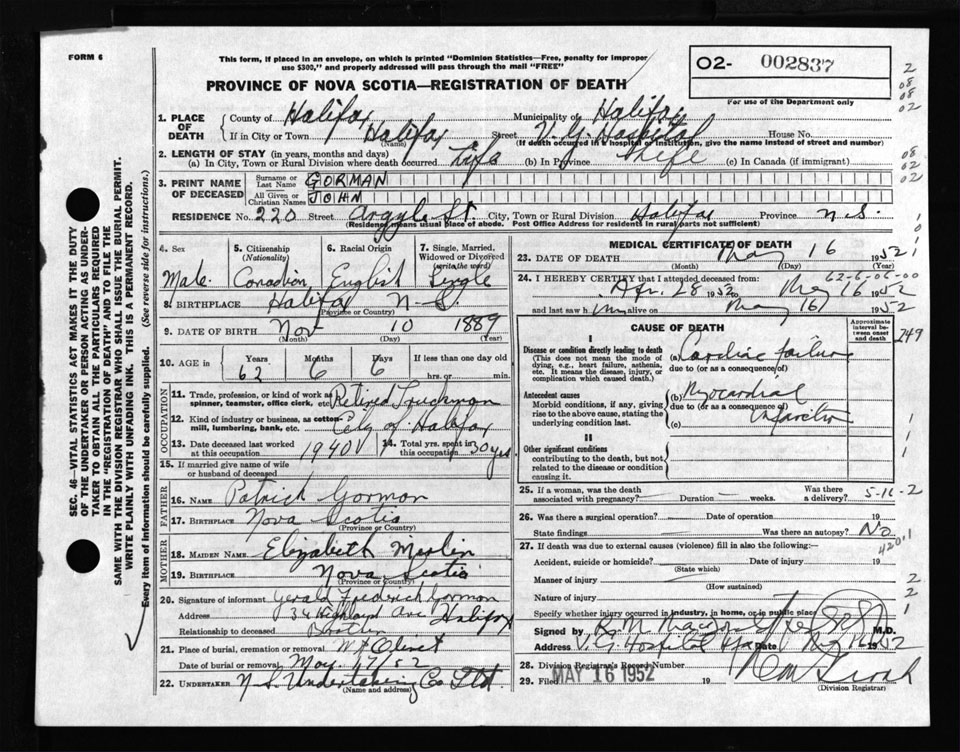 FORM 6
This form, if placed in an envelope, on which is printed "Dominion Statistics—Free, penalty for improper
use $300," and properly addressed will pass through the mail "FREE"
PROVINCE OF NOVA SCOTIA—REGISTRATION OF DEATH
O2- 002837
For use of the Department only
1. PLACE OF DEATH
County of Halifax Municipality of Halifax
If in City or Town Halifax Street V. G. Hospital House No.
(Name) (If death occurred in a hospital or institution, give the name instead of street and number)
2. LENGTH OF STAY (in years, months and days)
(a) In City, Town or Rural Division where death occurred Life (b) In Province Life (c) In Canada (if immigrant)
3. PRINT NAME OF DECEASED
Surname or Last Name GORMAN
All Given or Christian Names JOHN
RESIDENCE No. 220 Street Argyle St. City, Town or Rural Division Halifax Province N.S.
(Residence means usual place of abode. Post Office Address for residents in rural parts not sufficient)
4. Sex Male
5. Citizenship (Nationality) Canadian
6. Racial Origin English
7. Single, Married, Widowed or Divorced (write the word) Single
8. BIRTHPLACE Halifax N-S.
(Province or Country)
9. DATE OF BIRTH Nov 10 1889
(Month) (Day) (Year)
10. AGE Years Months Days If less than one day old
62 6 6 hrs. or min.
OCCUPATION
11. Trade, profession, or kind of work as spinner, teamster, office clerk, etc. Retired Truckman
12. Kind of industry or business, as cotton mill, lumbering, bank, etc. City of Halifax
13. Date deceased last worked at this occupation 1940
14. Total yrs. spent in this occupation 30 yrs.
15. If married give name of wife or husband of deceased
FATHER
16. NAME Patrick Gorman
17. BIRTHPLACE Nova Scotia
(Province or Country)
MOTHER
18. MAIDEN NAME Elizabeth
19. BIRTHPLACE Nova Scotia
(Province or Country)
20. Signature of informant Gerald Fredrick Gorman
Address 34 Highland Ave Halifax
Relationship to deceased Brother
21. Place of burial, cremation or removal Mt Olivet
Date of burial or removal May 17/52
22. UNDERTAKER N S. Undertaking Co Ltd.
(Name and address)
MEDICAL CERTIFICATE OF DEATH
23. DATE OF DEATH May 16 1952
(Month) (Day) (Year)
62-6-06-00
24. I HEREBY CERTIFY that I attended deceased from:
Apr. 28 1952 May 16 1952
and last saw him alive on May 16 1952
CAUSE OF DEATH
Approximate interval between onset and death
I
Disease or condition directly leading to death
(This does not mean the mode of dying, e.g., heart failure, asthenia, etc. It means the disease, injury, or complication which caused death.)
(a) Cardiac failure
due to (or as a consequence of)
Antecedent causes
Morbid conditions, if any, giving rise to the above cause, stating the underlying condition last.
(b) Myocardial
due to (or as a consequence of)
(c) infarction
II
Other significant conditions
contributing to the death, but not related to the disease or condition causing it.
25. If a woman, was the death associated with pregnancy? — Duration — weeks. Was there a delivery?
5-16-2
26. Was there a surgical operation? — Date of operation
State findings Was there an autopsy? No
4201
27. If death was due to external causes (violence) fill in also the following:—
Accident, suicide or homicide? Date of injury 19
(State which)
Manner of injury
(How sustained)
Nature of injury
Specify whether injury occurred in industry, in home, or in public place
Signed by M.D.
Address V. G. Hospital Date May 16 1952
28. Division Registrar's Record Number
29. Filed MAY 16 1952 19
(Division Registrar)
SEC. 46—VITAL STATISTICS ACT MAKES IT THE DUTY
OF THE UNDERTAKER OR PERSON ACTING AS UNDER-
TAKER TO OBTAIN ALL THE PARTICULARS REQUIRED
IN THE "REGISTRATION OF DEATH" AND TO FILE THE
SAME WITH THE DIVISION REGISTRAR WHO SHALL ISSUE THE BURIAL PERMIT.
WRITE PLAINLY WITH UNFADING INK. THIS IS A PERMANENT RECORD.
Every item of information should be carefully supplied. (See reverse side for instructions.)
2
08
08
02
08
02
02
249